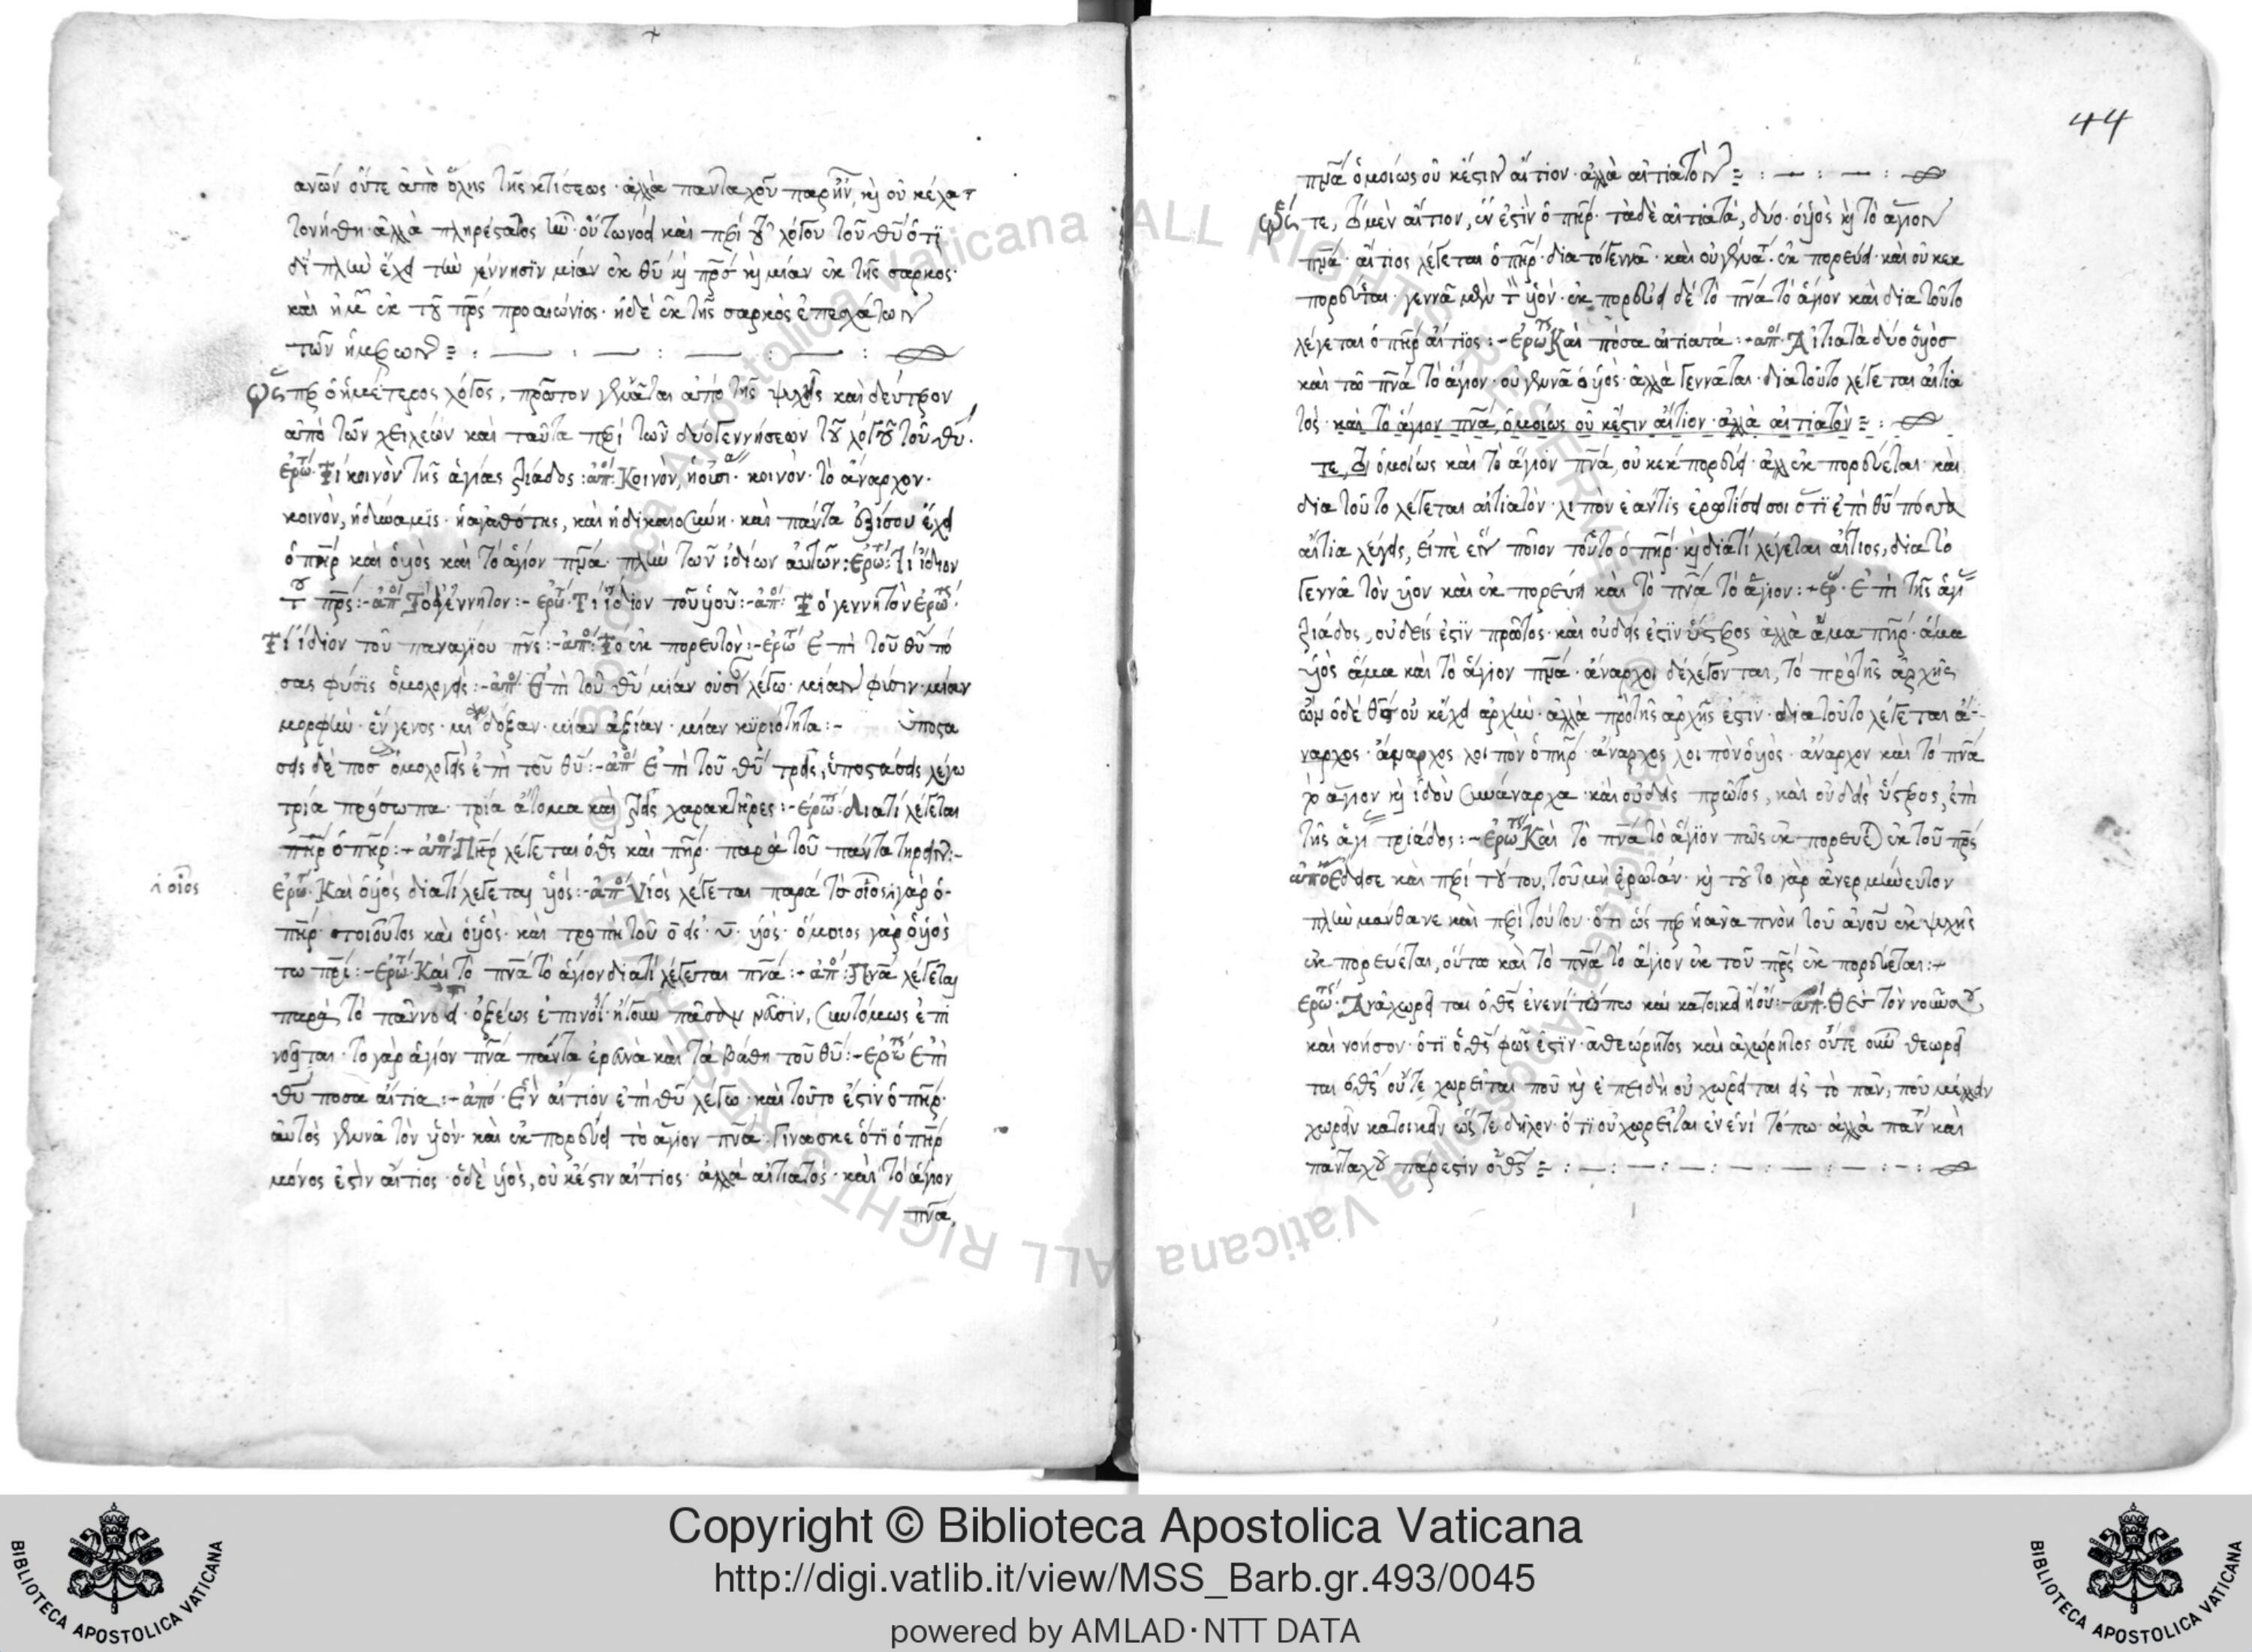 ανῶν οὔτε ἀπὸ ὅλης τῆς κτίσεως· ἀλλὰ πανταχοῦ παρῆν, κὶ οὐ κέχα
τονήθη· ἀλλὰ πληρέστατος
διπλὴν ἔχει τὴν γέννησϊν μίαν ἐκ θῡ κὶ π̅ρ̅ς κὶ μίαν ἐκ τῆς σαρκος·
καὶ ἡ μὲν ἐκ τοῦ π̅ρ̅ς προαιώνιος· ἡ δὲ ἐκ τῆς σαρκὸς ἐπεσχάτων
τῶν ἡμερῶν
ὥσπερ ὁ ἡμέτερος λόγος, πρῶτον γεννᾶται ἀπὸ τῆς ψυχῆς καὶ δεύτερον
ἀπὸ τῶν χειλεών καὶ ταῦτα περὶ τῶν δύο γεννήσεων τοῦ λόγου τοῦ θῡ·
ἐρώ· Τί κοινὸν τῆς ἁγίας τριάδος : ἀπό· Κοινὸν, ἡ οὐσία· κοινὸν· τὸ ἄναρχον·
κοινὸν, ἡ δύναμϊς· ἡ ἀγαθότης, καὶ ἡ δικαιοσύνη· καὶ πάντα ἐξίσου ἔχει
ὁ π̅η̅ρ καὶ ὁ υἱὸς καὶ τὸ ἅγιον π̅ν̅α· πλὴν τῶν ἰδίων αὐτῶν : Ἐρώ : τί ἴδιον
τοῦ π̅ρ̅ς :- ἀπό· Τὸ ἀγέννητον :- ἐρώ· Τί ἴδιον τοῦ υἱοῦ :- ἀπό· Τὸ γεννητὸν ἐρώτ·
Τί ἴδιον τοῦ παναγίου π̅ν̅ς :- ἀπό· Τὸ ἐκπορευτὸν :- ἐρώτ Ἐπὶ τοῦ θῡ πό
σας φύσϊς ὁμολογεῖς :- ἀπό· Ἐπὶ τοῦ θῡ μίαν οὐσί λέγω· μίαν φύσιν· μίαν
μορφὴν· ἓν γενος· μι δόξαν· μίαν ἀξίαν· μίαν κϋριότητα :- ὑποστα
σεις δὲ ποσ ὁμολογεῖς ἐπὶ τοῦ θῡ :- ἀπό Ἐπὶ τοῦ θῡ τρεῖς, ὑποστάσεις λέγω
τρία πρόσωπα· τρία ἄτομα καὶ τρεῖς χαρακτῆρες :- Ἐρώτ· διατί λέγεται
π̅η̅ρ ὁ π̅η̅ρ :- ἀπό· Π̅η̅ρ λέγεται ὁ θ̅ς καὶ π̅η̅ρ· παρὰ τοῦ πάντα τηρεῖν :-
οἷος
Ἐρώ· Καὶ ὁ υἱὸς διατί λέγεται υἱὸς :- ἀπό Υἱὸς λέγεται παρά τὸ οἷος γὰρ ὁ
π̅η̅ρ· τοιοῦτος καὶ ὁ υἱὸς· καὶ τροπὴ τοῦ ο εἰς υ· υἱὸς· ὅμοιος γὰρ ὁ υἱὸς
τω π̅ρ̅ι :- Ἐρώτ· Καὶ τὸ π̅ν̅α τὸ ἅγιον διατί λέγεται π̅ν̅α :- ἀπό· Π̅ν̅α λέγεται
παρὰ τὸ πᾶν νο ει· ὀξέως ἐπινοεῖ· ἤτουν συντόμως ἐπι
νοεῖται· το γὰρ ἅγιον π̅ν̅α πάντα ἐρευνὰ και τὰ βάθη τοῦ θῡ :- Ἐρώτ Ἐπὶ
θῡ ποσα αἴτια :- ἀπό· Ἓν αἴτιον ἐπὶ θῡ λέγω· καὶ τοῦτο ἐστὶν ὁ π̅η̅ρ·
αὐτὸς γεννᾶ τὸν υἱόν· καὶ ἐκπορεύει τὸ ἅγιον π̅ν̅α· Γίνωσκε ὅτϊ ὁ π̅η̅ρ
μόνος ἐστὶν αἴτιος· ὁ δὲ υἱὸς, οὐκ ἔστιν αἴτιος· ἀλλὰ αἰτιατός· καὶ τὸ ἅγιον
π̅ν̅α,
44
π̅ν̅α ὁμοίως οὐκ ἔστιν αἴτιον· ἀλλὰ αἰτιατόν
ὥστε, τὸ μὲν αἴτιον, ἕν ἐστὶν ὁ π̅η̅ρ· τὰ δὲ αἰτιατά, δύο· ὁ υἱὸς κὶ τὸ ἅγιον
π̅ν̅α· αἴτιος λέγεται ὁ π̅η̅ρ· διατὸ γεννᾶ· καὶ οὐ γεννᾶτ· ἐκπορεύει· καὶ οὐκ ἐκ
πορεύεται· γεννᾶ μὲν τὸν υἱόν· ἐκπορεύει δέ τὸ π̅ν̅α τὸ ἅγιον καὶ δια τοῦτο
λέγεται ὁ π̅η̅ρ αἴτϊος :- Ἐρώτ Καὶ πόσα αἰτιατά :- ἀπό· Αἰτιατὰ δύο ὁ υἱὸσ
καὶ τὸ π̅ν̅α τὸ ἅγιον· οὐ γεννᾶ ὁ υἱὸς· ἀλλὰ γεννᾶται· διατοῦτο λέγεται αἰτια
τός· καὶ τὸ ἅγιον π̅ν̅α, ὁμοίως οὐκ ἔστιν αἴτιον· ἀλλὰ αἰτιατὸν
ὁμοίως καὶ τὸ ἅγιόν π̅ν̅α, οὐκ ἐκπορεύει· ἀλλ ἐκπορεύεται· καὶ
δια τοῦτο λέγεται αἰτιατὸν· λιπὸν ἐαντὶς ἐρωτίσει σοι ὅτϊ ἐπὶ θῡ πόσα
αἴτια λέγεις, εἰπὲ ἓν ποῖον τοῦτο ὁ π̅η̅ρ· κὶ διατί λέγεται αἴτιος, δια τὸ
γεννᾶ τὸν υἱον καὶ ἐκπορεύη καὶ τὸ π̅ν̅α τὸ ἅγιον :- ἐρ· Ἐπὶ τῆς ἁγι
τριάδος, οὐδείς ἐστϊν πρῶτος· καὶ οὐδεὶς ἐστϊν ὕστερος ἀλλὰ ἅμα π̅η̅ρ· ἅμα
υἱὸς ἅμα καὶ τὸ ἅγιον π̅ν̅α· ἄναρχοι δὲ λέγονται, τὸ πρὸ τῆς ἀρχῆς
ὢν ὁ δέ θ̅ς οὐκ ἔχει ἀρχὴν· ἀλλὰ πρὸ τῆς ἀρχῆς ἐστιν· δια τοῦτο λέγεται ἄ
ναρχος· ἄναρχος λοιπὸν ὁ π̅η̅ρ· ἄναρχος λοιπὸν ὁ υἱὸς· ἄναρχον καὶ τὸ π̅ν̅α
τὸ ἅγιον κὶ ἰδοὺ συνάναρχα· καὶ οὐδεὶς πρῶτος, καὶ οὐδεὶς ὕστερος, ἐπὶ
τῆς ἁγι τριάδος :- Ἐρώτ Καὶ τὸ π̅ν̅α τὸ ἅγϊον πῶς ἐκπορεύετ ἐκ τοῦ π̅ρ̅ς
ἀπό καὶ περὶ τούτου, τοῦ μὴ ἐρωτάν· κὶ τοῦτο γὰρ ἀνερμήνευτον
πλὴν μάνθανε καὶ περὶ τούτου· ὅτι ὥσπερ ἡ ἀναπνοὴ τοῦ ἀνοῦ ἐκ ψυχῆς
ἐκπορεύεται, οὕτω καὶ τὸ π̅ν̅α τὸ ἅγιον ἐκ τοῦ π̅ρ̅ς ἐκπορεύεται :-
Ἐρώτ· Ἀναχωρεῖται ὁ θ̅ς ἐν ενὶ τόπω καὶ κατοικεῖ ἢ οὔ :- ἀπό· Θὲς τὸν νοῦν σου,
καὶ νόησον· ὅτϊ ὁ θ̅ς φῶς ἐστϊν· ἀθεώρητος καὶ ἀχώρητος οὔτε οὖν θεωρεῖ
ται ὁ θ̅ς οὔτε χωρεῖται ποῦ κὶ ἐπειδὴ οὐ χωρεῖται εἰς τὸ πᾶν, ποῦ μέλλειν
χωρεῖν κατοικεῖν ὥστε δῆλον· ὅτϊ οὐ χωρεῖται ἐν ἑνὶ τόπω· ἀλλὰ παν καὶ
πανταχοῦ πάρεστιν ὁ θ̅ς
Copyright © Biblioteca Apostolica Vaticana
http://digi.vatlib.it/view/MSS_Barb.gr.493/0045
powered by AMLAD·NTT DATA
BIBLIOTECA APOSTOLICA VATICANA
BIBLIOTECA APOSTOLICA VATICANA